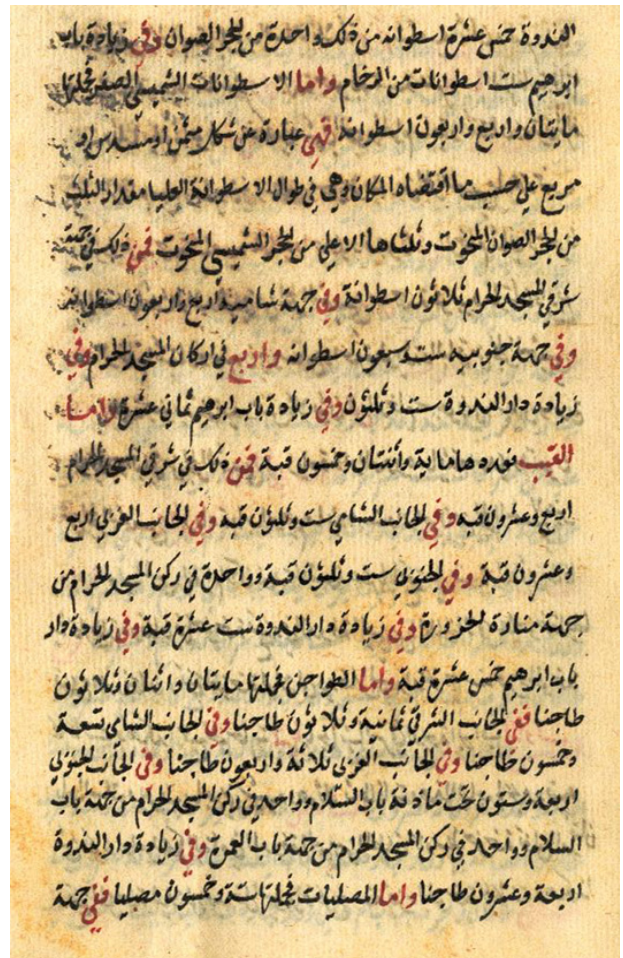 الندوة خمس عشرة اسطوانه من ذلك واحدة من الحجر الصوان وفي زيادة باب
ابرهيم ست اسطوانات من الرخام واما الاسطوانات الشميسي الصفر فجملتها
مايتان واربع واربعون اسطوانة فهي عبارة عن شكل مثمن او مسدس او
مربع علي حسب ما اقتضاه المكان وهي في طوال الاسطوانة العليا مقدار الثلث
من الحجر الصوان المنحوت وثلثاها الاعلي من الحجر الشميسي المنحوت فمن ذلك في جهة
شرقي المسجد الحرام ثلاثون اسطوانة وفي جهة شاميه اربع واربعون اسطوانه
وفي جهة جنوبيه ست وسبعون اسطوانه واربع في اركان المسجد الحرام وفي
زيادة دار الندوة ست وثلثون وفي زيادة باب ابرهيم ثماني عشرة واما
القبب فعدها ماية واثنتان وخمسون قبة فمن ذلك في شرقي المسجد الحرام
اربع وعشرون قبه وفي الجانب الشامي ست وثلثون قبه وفي الجانب الغربي اربع
وعشرون قبة وفي الجنوبي ست وثلثون قبة وواحدة في ركن المسجد الحرام من
جهة منارة الحزورة وفي زيادة دار الندوة ست عشرة قبة وفي زيادة دار
باب ابرهيم خمس عشرة قبة واما الطواجن فجملتها مايتان واثنان وثلاثون
طاجنا ففي الجانب الشرقي ثمانية وثلاثون طاجنا وفي الجانب الشامي تسعة
وخمسون طاجنا وفي الجانب الغربي ثلاثة واربعون طاجنا وفي الجانب الجنوبي
اربعة وستون تحت مادنة باب السلام وواحد في ركن المسجد الحرام من جهة باب
السلام وواحد في ركن المسجد الحرام من جهة باب العمرة وفي زيادة دار الندوة
اربعة وعشرون طاجنا واما المصليات فجملتها ستة وخمسون مصليا ففي جهة